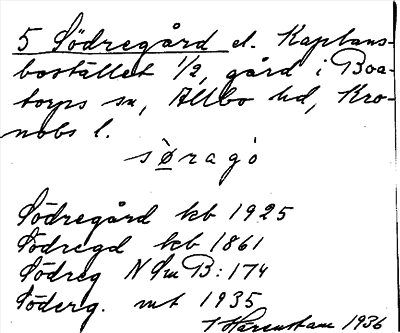 5 Södregård el. Kaplans-
bostället 1/2, gård i Boa-
torps sn, Allbo hd, Kro-
nobs l.
sø̀ragò
Södregård kb 1925
Södregd kb 1861
Södreg N Sm B: 174
Söderg. mt 1935
1936